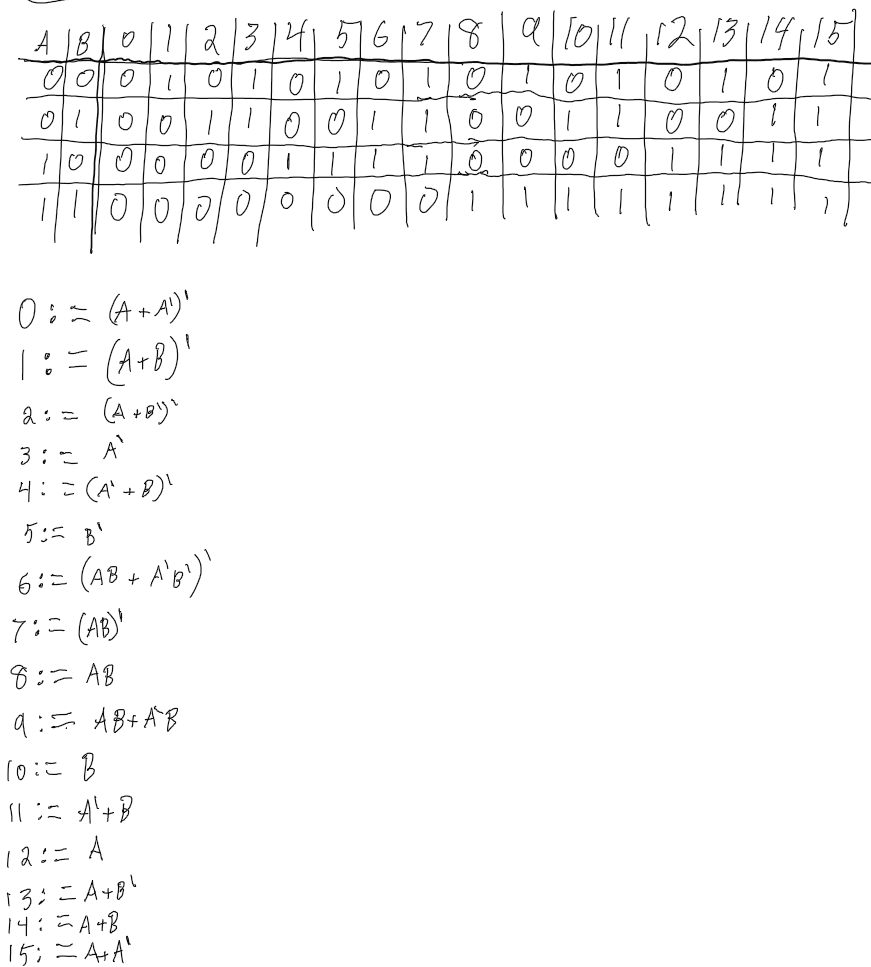 A B 0 1 2 3 4 5 6 7 8 9 10 11 12 13 14 15
0 0 0 1 0 1 0 1 0 1 0 1 0 1 0 1 0 1
0 1 0 0 1 1 0 0 1 1 0 0 1 1 0 0 1 1
1 0 0 0 0 0 1 1 1 1 0 0 0 0 1 1 1 1
1 1 0 0 0 0 0 0 0 0 1 1 1 1 1 1 1 1
0 := (A + A')'
1 := (A+B)'
2 := (A + B')'
3 := A'
4 := (A' + B)'
5 := B'
6 := (AB + A'B')'
7 := (AB)'
8 := AB
9 := AB + A'B
10 := B
11 := A' + B
12 := A
13 := A + B'
14 := A + B
15 := A + A'